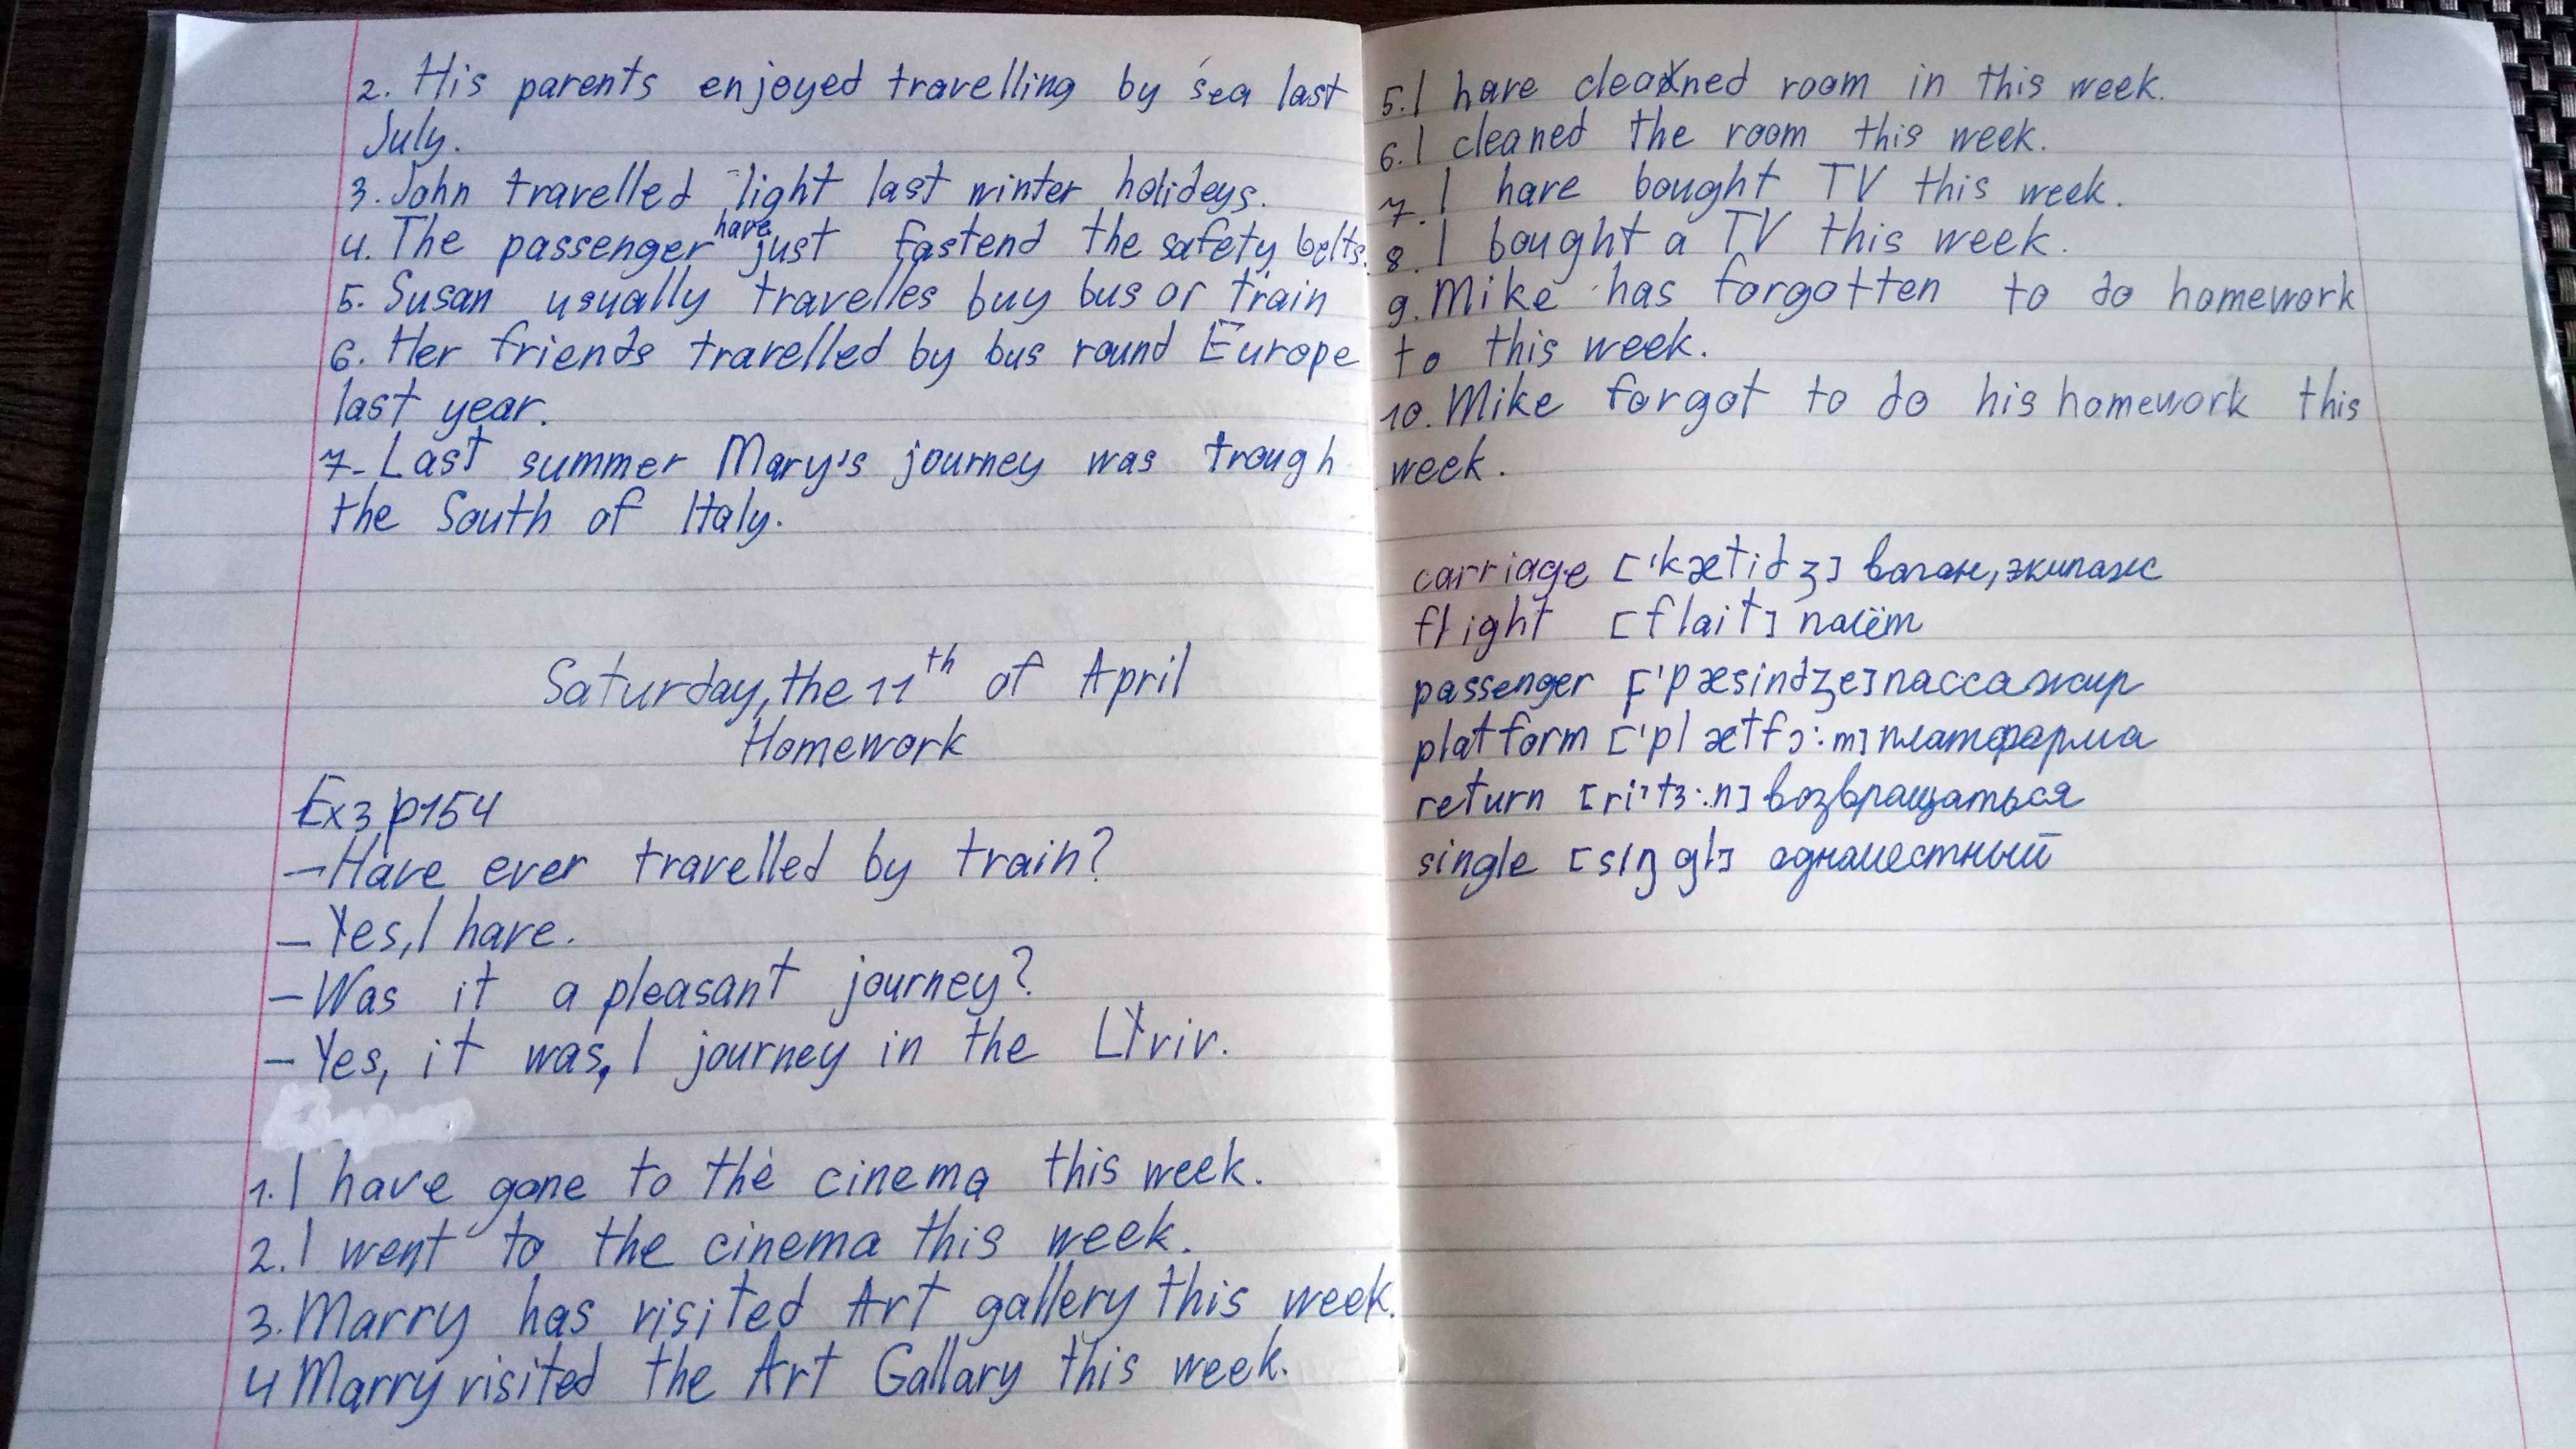 2. His parents enjoyed travelling by sea last
July.
3. John travelled light last winter holideys.
have
4. The passenger just fastend the safety belts.
5. Susan usually travelles buy bus or train
6. Her friends travelled by bus round Europe
last year.
7. Last summer Mary's journey was trough
the South of Italy.
Saturday, the 11th of April
Homework
Ex3 p154
– Have ever travelled by train?
– Yes, I have.
– Was it a pleasant journey?
– Yes, it was, I journey in the Lviv.
1. I have gone to the cinema this week.
2. I went to the cinema this week.
3. Marry has visited Art gallery this week.
4 Marry visited the Art Gallary this week.
5. I have cleaned room in this week.
6. I cleaned the room this week.
7. I have bought TV this week.
8. I bought a TV this week.
9. Mike has forgotten to do homework
to this week.
10. Mike forgot to do his homework this
week.
carriage ['kætidʒ] вагон, экипаж
flight [flait] полёт
passenger ['pæsindʒe] пассажир
platform ['plætfɔ:m] платформа
return [ri'tɜ:n] возвращаться
single [sIŋgl] одноместный